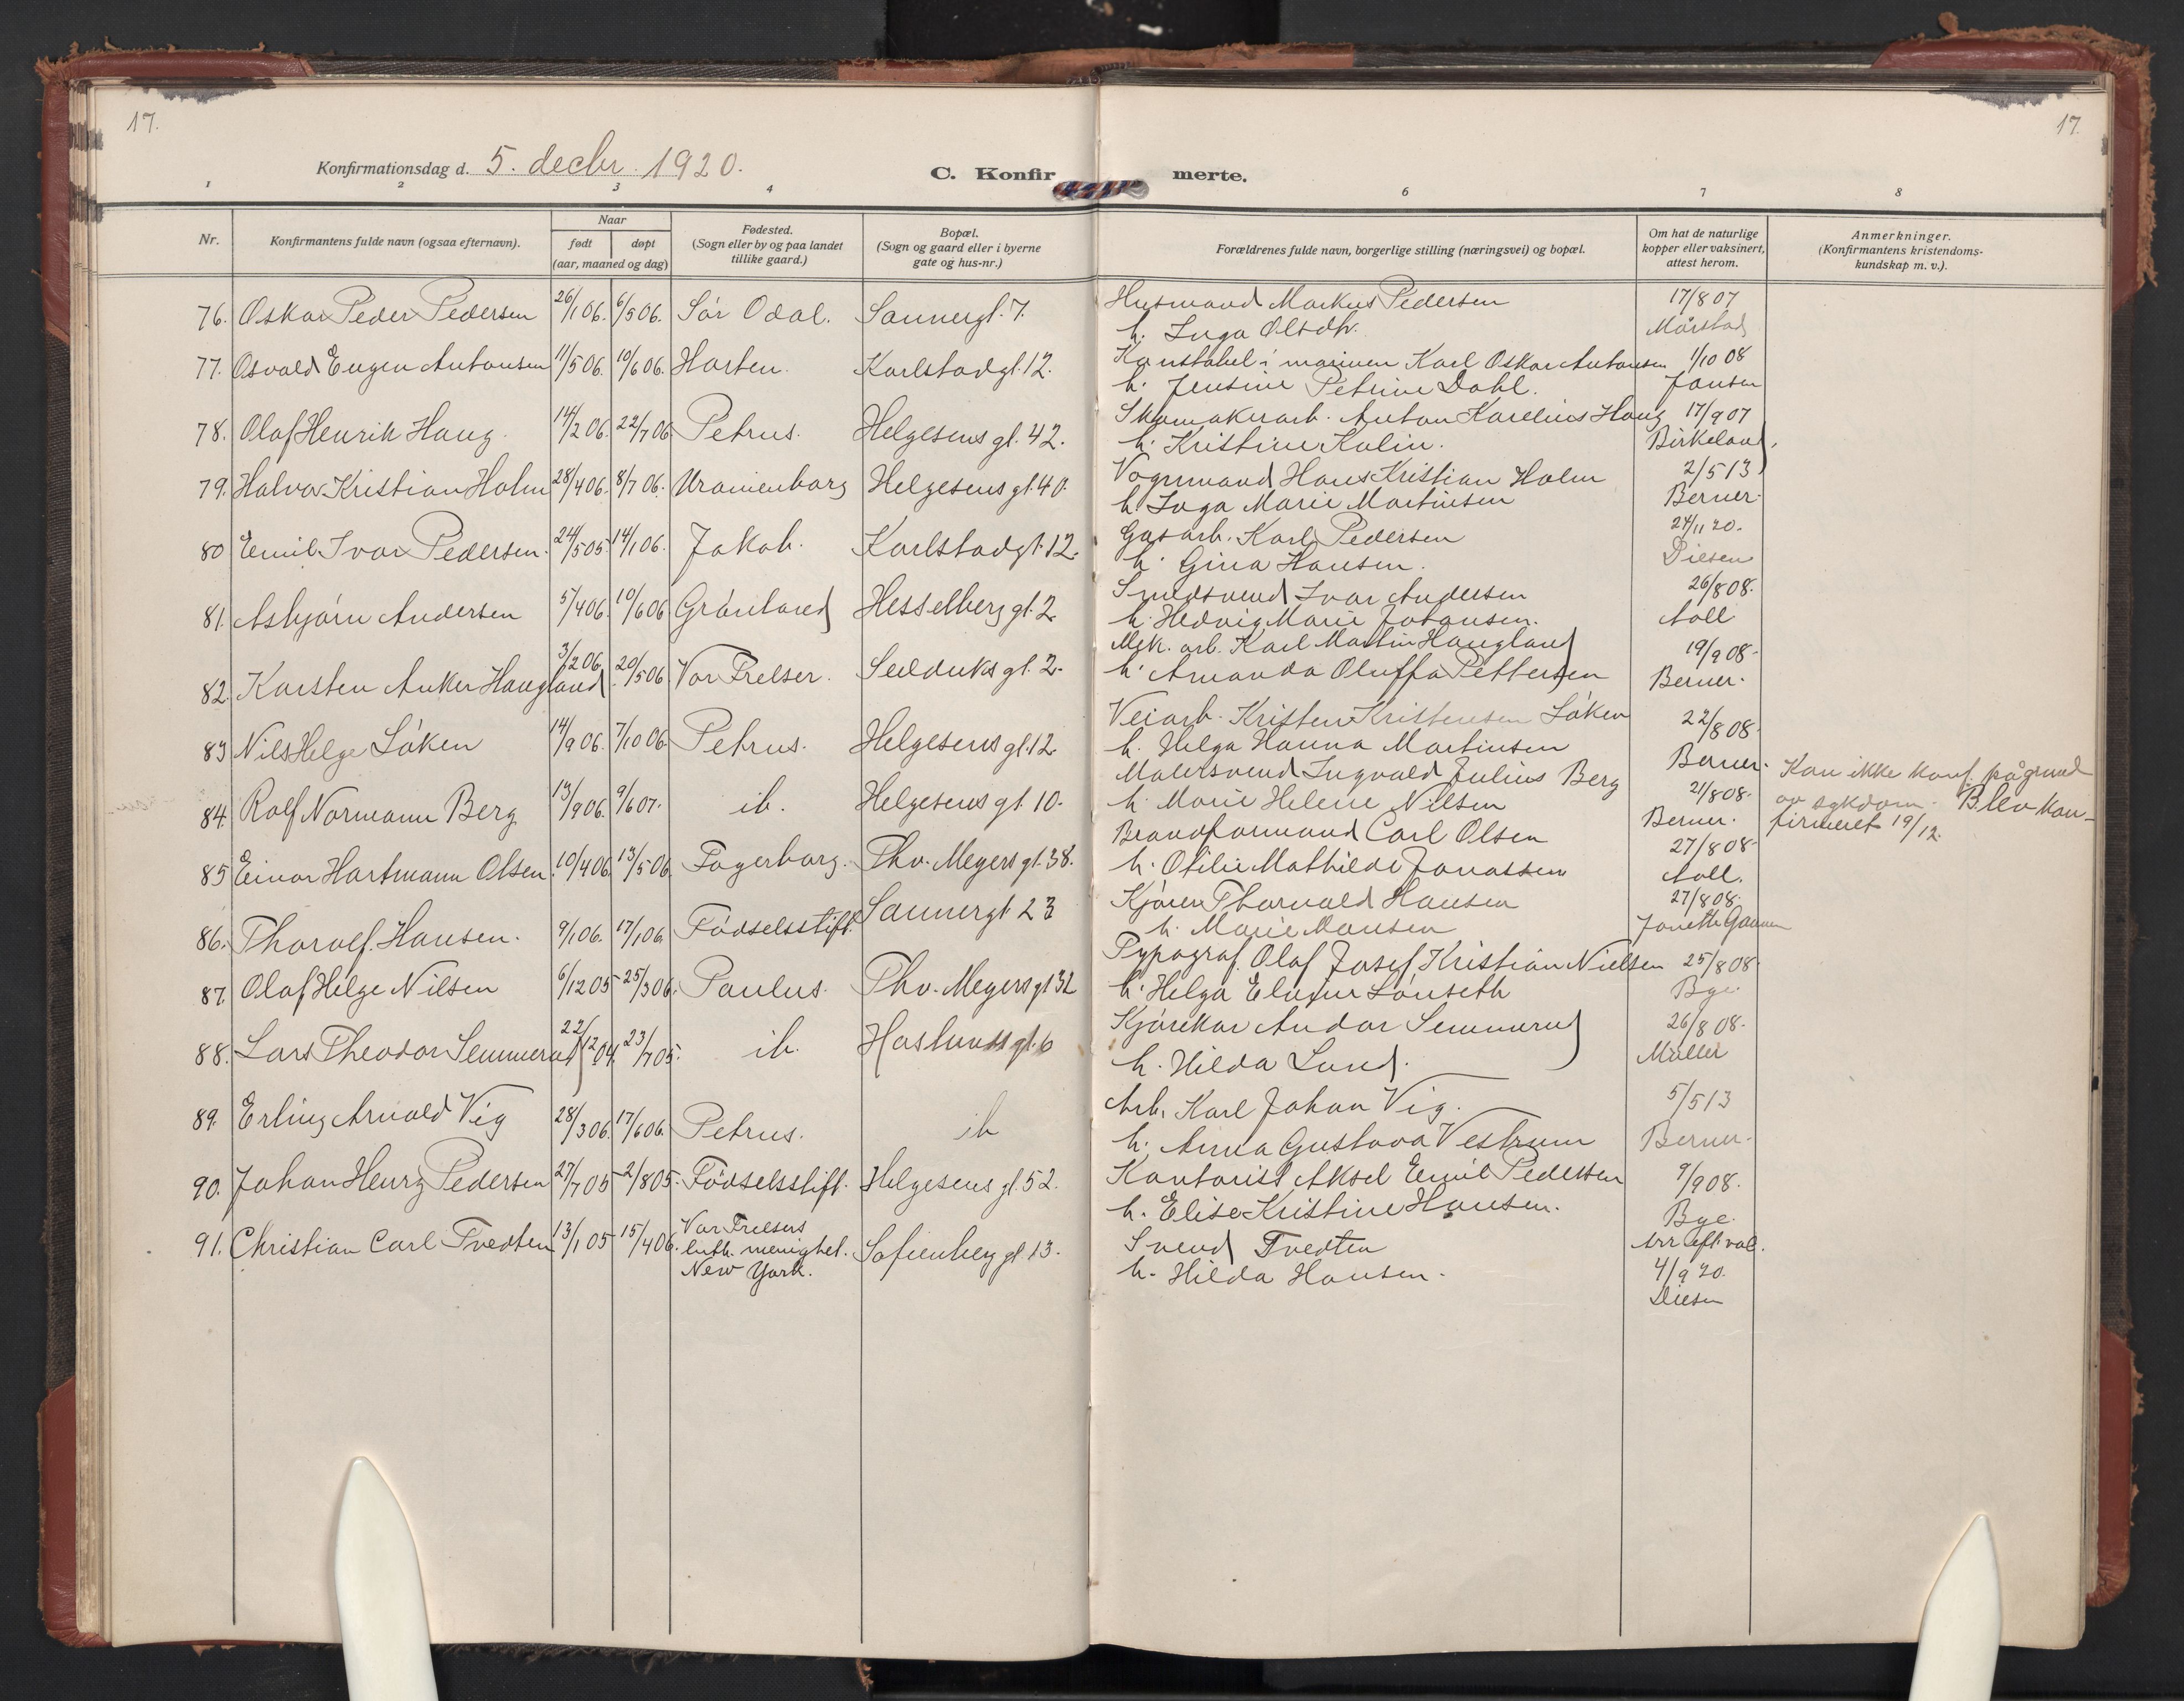 17. 17.
Konfirmationsdag d. 5. decbr. 1920. C. Konfir merte.
1 2 3 4 6 7 8
Nr. Konfirmantens fulde navn (ogsaa efternavn). Naar født døpt (aar, maaned og dag) Fødested. (Sogn eller by og paa landet tillike gaard.) Bopæl. (Sogn og gaard eller i byerne gate og hus-nr.) Forældrenes fulde navn, borgerlige stilling (næringsvei) og bopæl. Om hat de naturlige kopper eller vaksinert, attest herom. Anmerkninger. (Konfirmantens kristendoms- kundskap m. v.).
76. Oskar Peder Pedersen 26/1 06. 6/5 06. Sör Odal. Sannergt. 7. Husmand Markus Pedersen 17/8 07
h. Inga Olsdtr. Mørstad
77. Osvald Eugen Antonsen 11/5 06. 10/6 06. Horten. Karlstadgt. 12. Konstabel i marinen Karl Oskar Antonsen 1/10 08
h. Jensine Petrine Dahl. Jansen
78. Olaf Henrik Haug. 14/2 06. 22/7 06 Petrus. Helgesens gt. 42. Skomakerarb. Anton Karelius Haug 17/9 07
h. Kristine Kolin. Birkeland.
79. Halvor Kristian Holm 28/4 06. 8/7 06. Uranienborg Helgesens gt. 40. Vognmand Hans Kristian Holm 2/5 13
h. Inga Marie Martinsen Berner.
80 Emil Ivar Pedersen. 24/5 05 14/1 06. Jakob. Karlstadgt. 12. Gasarb. Karl Pedersen 24/11 20.
h. Gina Hansen. Diesen
81. Asbjørn Andersen 5/4 06. 10/6 06 Grönland Hesselberg gt. 2. Smedsvend Ivar Andersen 26/8 08.
h. Hedvig Marie Johansen. Aall
82. Karsten Anker Haugland 3/2 06. 20/5 06 Vor Frelser. Seilduks gt. 2. Mek. arb. Karl Martin Haugland 19/9 08.
h. Amanda Oluffa Pettersen Berner.
83 Nils Helge Löken 14/9 06. 7/10 06. Petrus. Helgesens gt. 12 Veiarb. Kristen Kristensen Löken 22/8 08.
h. Helga Hanna Martinsen Berner.
84. Rolf Normann Berg 13/9 06. 9/6 07. ib. Helgesens gt. 10. Malersvend Ingvald Julius Berg 21/8 08. Kan ikke konf. på grund
h. Marie Helene Nilsen Berner. av sykdom. Blev kon-
firmeret 19/12.
85 Einar Hartmann Olsen. 10/4 06. 13/5 06. Fagerborg. Thv. Meyers gt. 38. Brandformand Carl Olsen 27/8 08.
h. Otilie Mathilde Jonassen Aall.
86. Tharolf. Hansen. 9/1 06. 17/1 06. Födselsstift. Sannergt. 23 Kjörer Thorvald Hansen 27/8 08.
h. Marie Hansen
87 Olaf Helge Nilsen 6/12 05 25/3 06. Paulus. Thv. Meyers gt 32 Typograf. Olaf Josef Kristian Nielsen 25/8 08.
h. Helga Lönseth Bye.
88. Lars Theodor Semmerud 22/12 04. 23/7 05. ib. gt. 6 Kjörekar Andor Semmerud 26/8 08.
h. Hilda Lund. Müller
89. Erling Arnold Vig 28/3 06. 17/6 06. Petrus. ib Arb. Karl Johan Vig. 5/5 13
h. Anna Gustava Vestrum Berner.
90. Johan Henry Pedersen 27/7 05 2/8 05. Födselsstift. Helgesens gt. 52. Kontorist Aksel Emil Pedersen 9/9 08.
h. Elise Kristine Hansen. Bye.
91. Christian Carl Tvedten 13/1 05 15/4 06. Vor Frelsers Sofienberg gt. 13. Svend Tvedten Arr eft. vac.
luth. menighet. h. Hilda Hansen. 4/9 20.
New York. Diesen